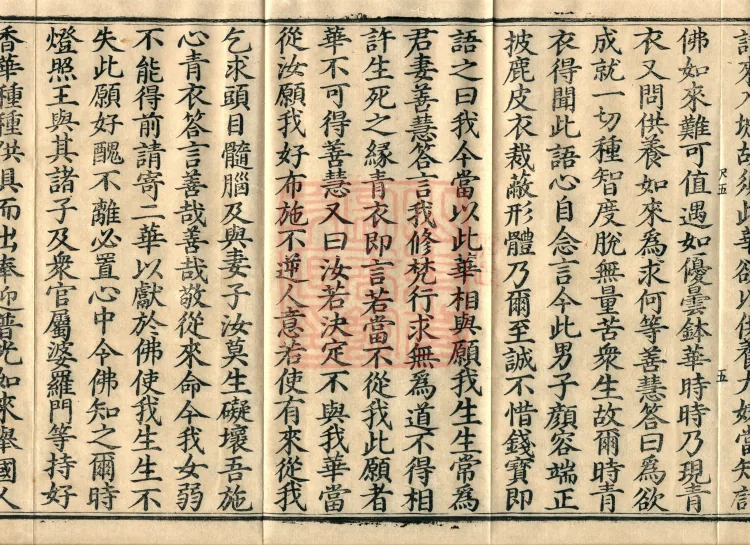 來入城故須此華欲以供養大姊當知諸
五
佛如來難可值遇如優曇鉢華時時乃現青
衣又問供養如來爲求何等善慧答曰爲欲
成就一切種智度脫無量苦衆生故爾時青
衣得聞此語心自念言今此男子顏容端正
披鹿皮衣裁蔽形體乃爾至誠不惜錢寶即
語之曰我今當以此華相與願我生生常爲
君妻善慧答言我修梵行求無爲道不得相
許生死之緣青衣即言若當不從我此願者
華不可得善慧又曰汝若決定不與我華當
從汝願我好布施不逆人意若使有來從我
乞求頭目髓腦及與妻子汝莫生礙壞吾施
心青衣答言善哉善哉敬從來命今我女弱
不能得前請寄二華以獻於佛使我生生不
失此願好醜不離必置心中令佛知之爾時
燈照王與其諸子及衆官屬婆羅門等持好
香華種種供具而出奉迎普光如來舉國人